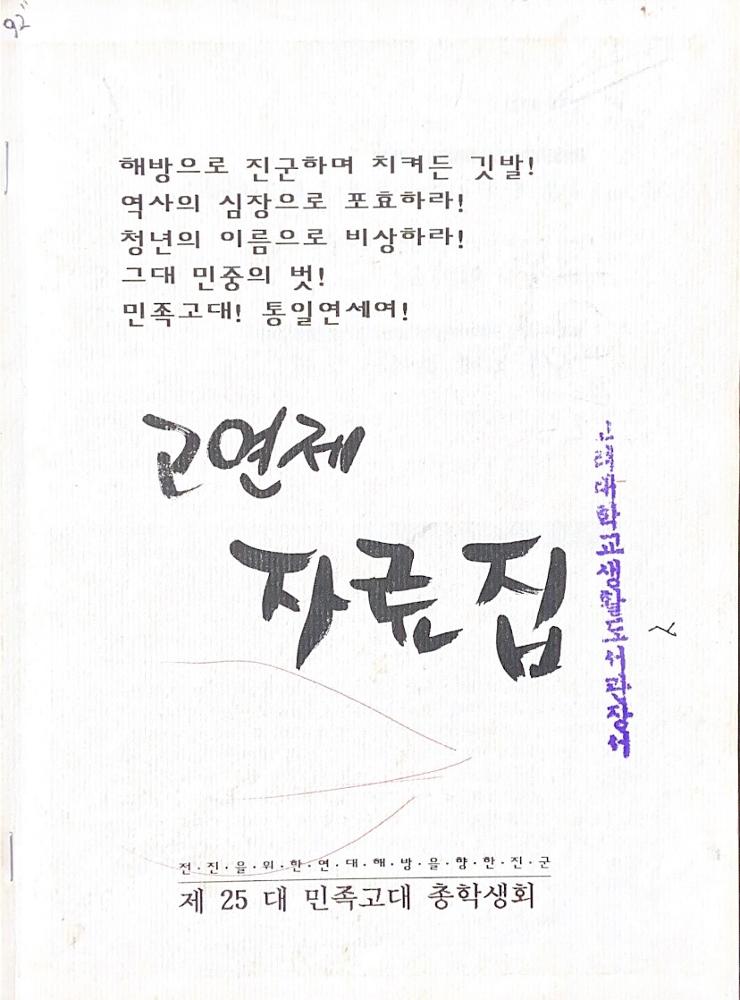 92"
해방으로 진군하며 치켜든 깃발!
역사의 심장으로 포효하라!
청년의 이름으로 비상하라!
그대 민중의 벗!
민족고대! 통일연세여!
고연제
자료집
고려대학교생활도서관장서
전·진·을·위·한·연·대·해·방·을·향·한·진·군
제 25 대 민족고대 총학생회